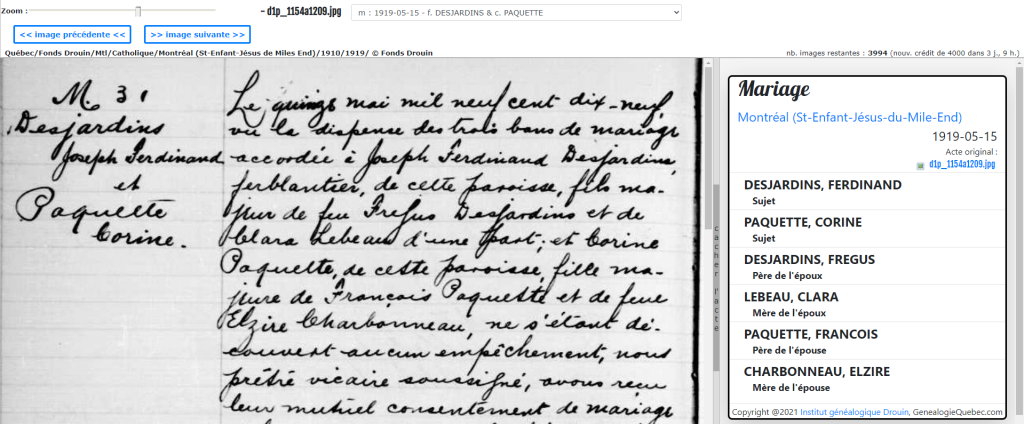 Zoom :
- d1p_1154a1209.jpg
m : 1919-05-15 - f. DESJARDINS & c. PAQUETTE
<< image précédente <<
>> image suivante >>
Québec/Fonds Drouin/Mtl/Catholique/Montréal (St-Enfant-Jésus de Miles End)/1910/1919/ © Fonds Drouin
nb. images restantes : 3994 (nouv. crédit de 4000 dans 3 j., 9 h.)
M. 31
Desjardins
Joseph Ferdinand
et
Paquette
Corine.
Le quinze mai mil neuf cent dix-neuf,
vu la dispense des trois bans de mariage
accordée à Joseph Ferdinand Desjardins,
ferblantier, de cette paroisse, fils ma-
jeur de feu Fregus Desjardins et de
Clara Lebeau d'une part; et Corine
Paquette, de cette paroisse, fille ma-
jeure de François Paquette et de feue
Elzire Charbonneau, ne s'étant dé-
couvert aucun empêchement, nous
prêtre vicaire soussigné, avons reçu
leur mutuel consentement de mariage
cacher l'acte
Mariage
Montréal (St-Enfant-Jésus-du-Mile-End)
1919-05-15
Acte original :
d1p_1154a1209.jpg
DESJARDINS, FERDINAND
Sujet
PAQUETTE, CORINE
Sujet
DESJARDINS, FREGUS
Père de l'époux
LEBEAU, CLARA
Mère de l'époux
PAQUETTE, FRANCOIS
Père de l'épouse
CHARBONNEAU, ELZIRE
Mère de l'épouse
Copyright @2021 Institut généalogique Drouin, GenealogieQuebec.com